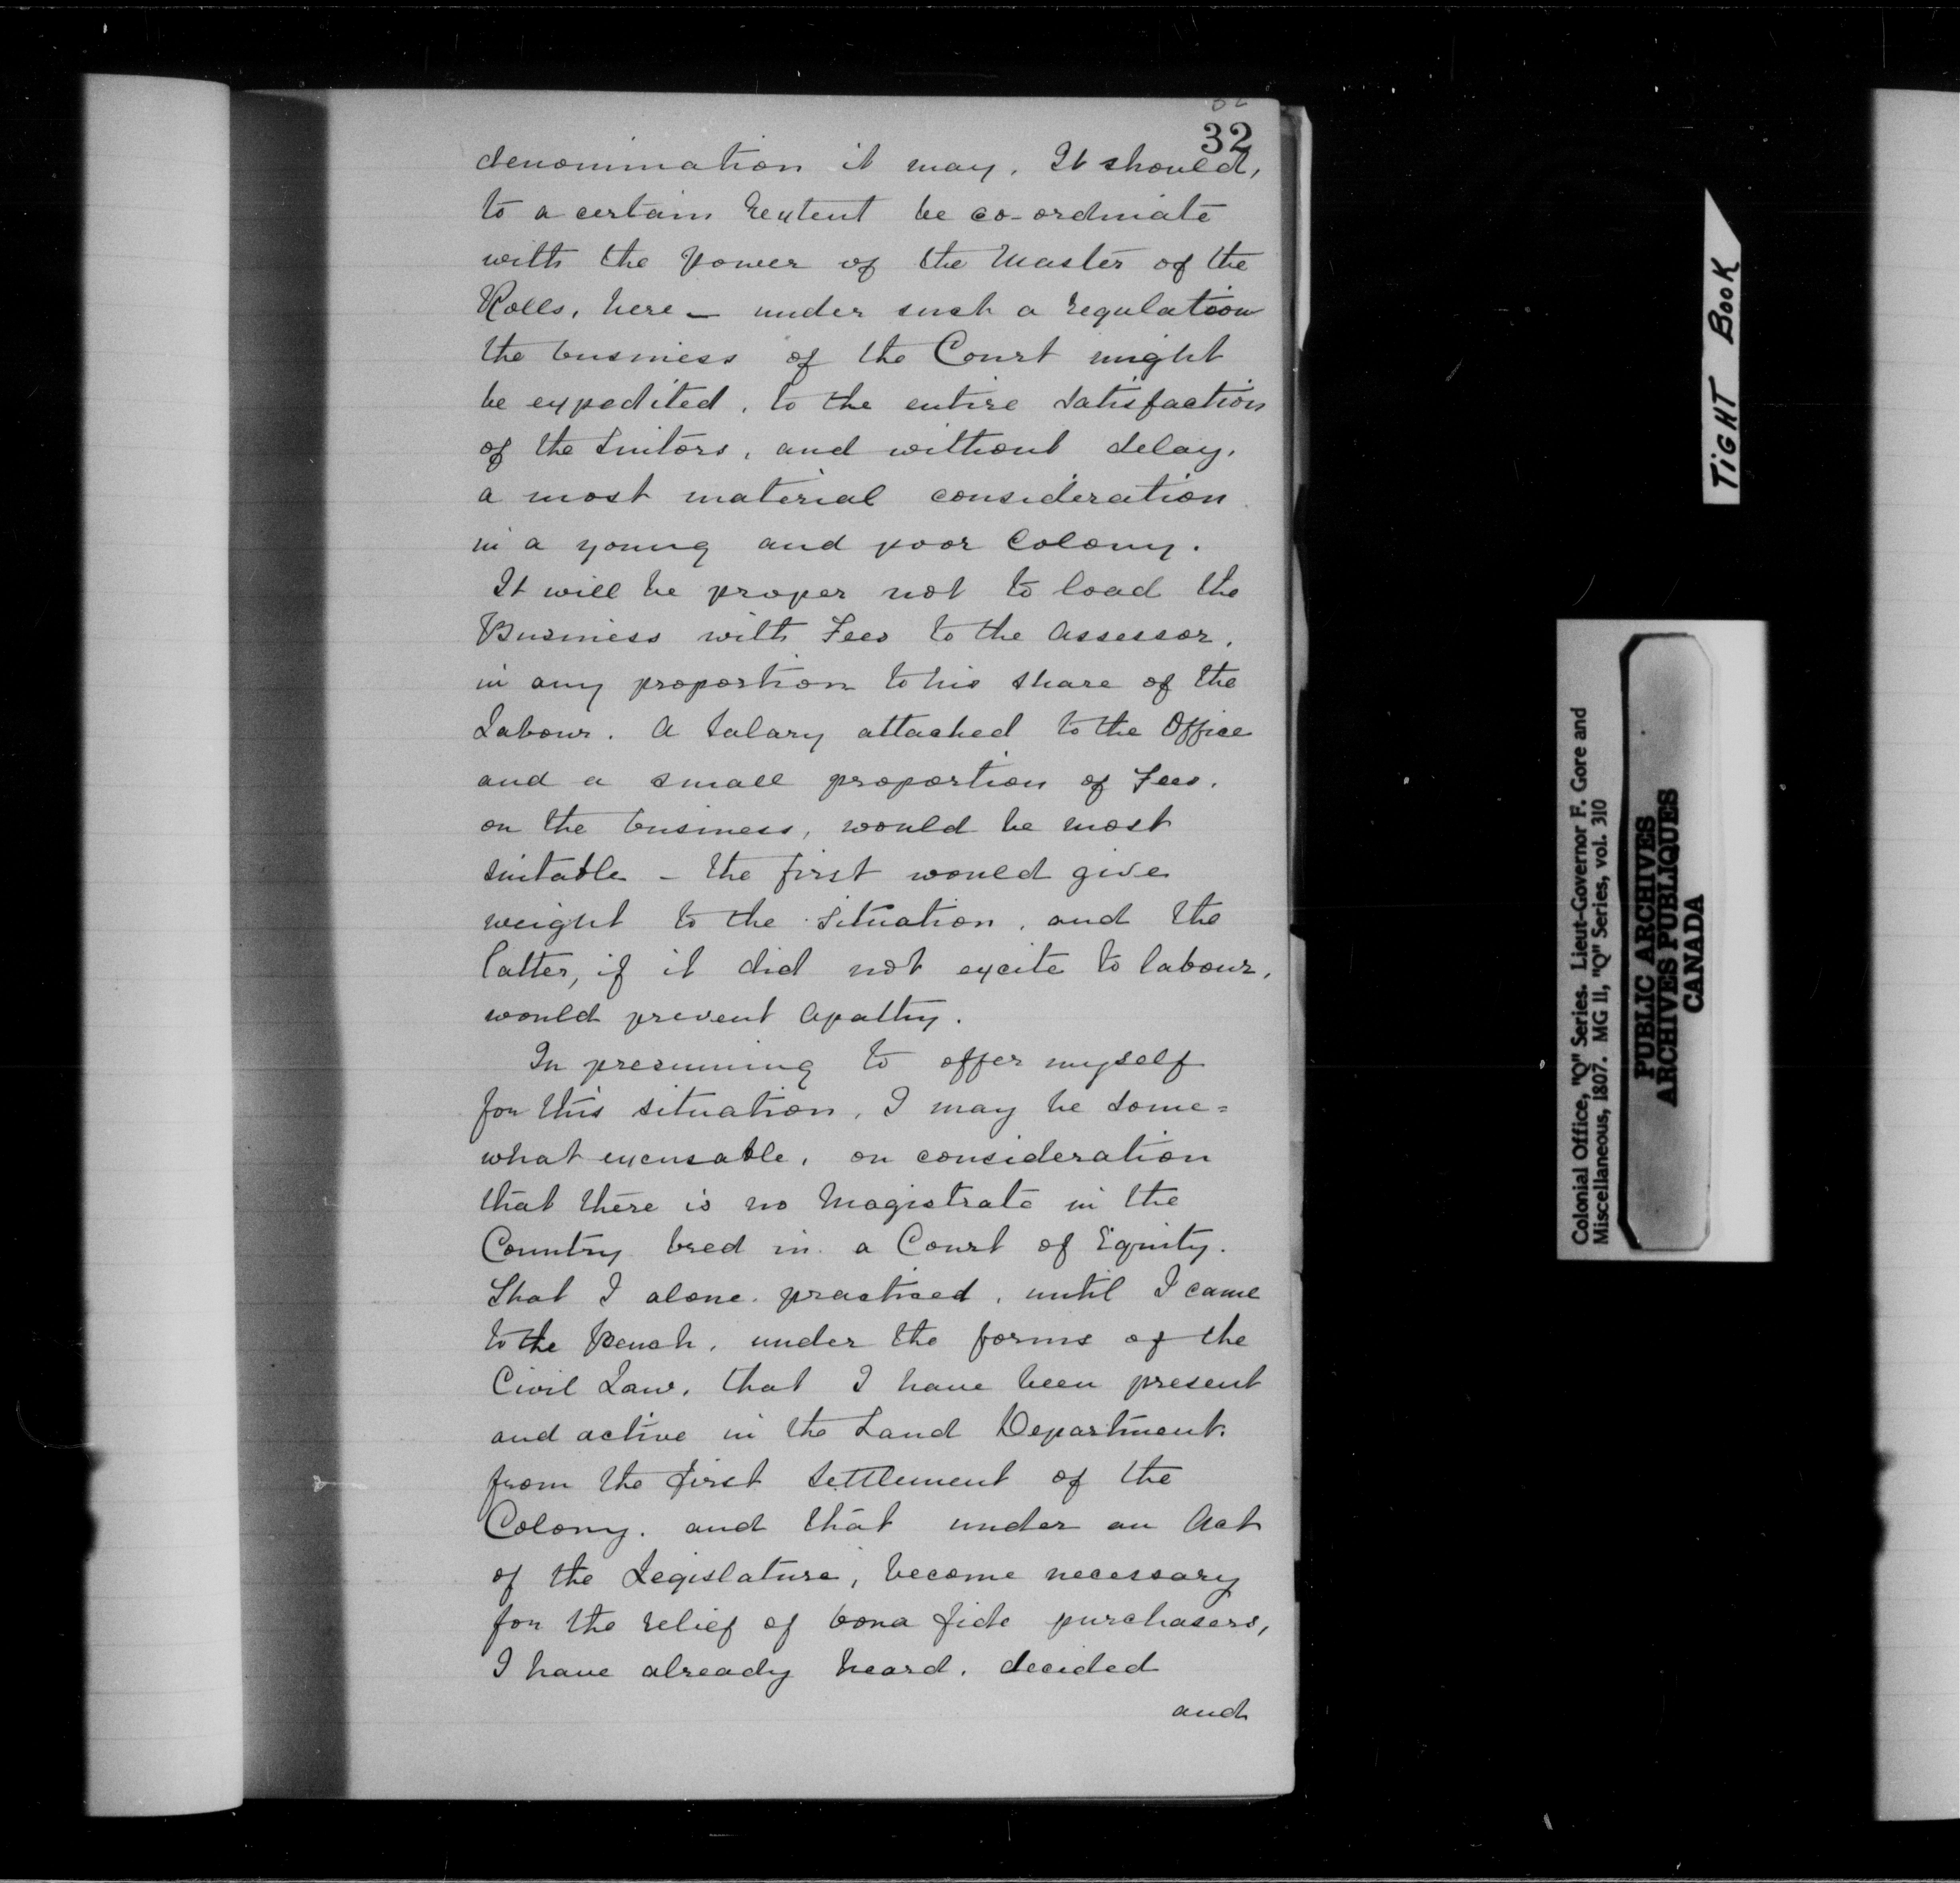 32
denomination it may. It should,
to a certain extent be co-ordinate
with the Power of the Master of the
Rolls, here — under such a regulation
the business of the Court might
be expedited, to the entire satisfaction
of the Suitors, and without delay,
a most material consideration
in a young and poor Colony.
It will be proper not to load the
Business with Fees to the Assessor,
in any proportion to his share of the
Labour. A Salary attached to the Office
and a small proportion of Fees,
on the business, would be most
suitable — the first would give
weight to the situation, and the
latter, if it did not excite to labour,
would prevent Apathy.
In presuming to offer myself
for this situation, I may be some=
what excusable, on consideration
that there is no Magistrate in the
Country bred in a Court of Equity.
That I alone practised, until I came
to the Bench, under the forms of the
Civil Law, that I have been present
and active in the Land Department.
from the first settlement of the
Colony. and that under an Act
of the Legislature, become necessary
for the relief of bona fide purchasers,
I have already heard, decided
and
TIGHT BOOK
Colonial Office, "Q" Series. Lieut-Governor F. Gore and
Miscellaneous, 1807. MG 11, "Q" Series, vol. 310
PUBLIC ARCHIVES
ARCHIVES PUBLIQUES
CANADA